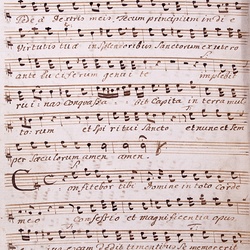 Sede a dextris meis. Tecum principium in die
virtutis tuæ in splendoribus Sanctorum ex utero
ante luciferum genui te implebit
ruinas conquassabit Capita in terra mul
torum et Spiritui Sancto, et nunc et sem
per Sæculorum amen. amen.
Confitebor tibi Domine in toto Corde
meo Confessio et magnificentia opus
escam dedit timentibus se memor erit